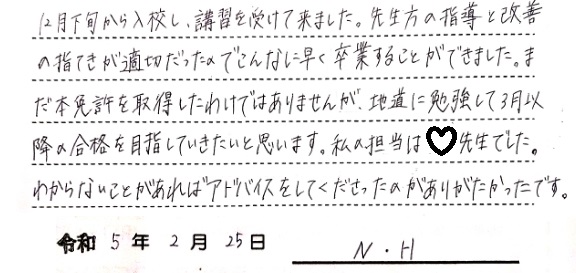 12月下旬から入校し、講習を受けて来ました。先生方の指導と改善
の指てきが適切だったのでこんなに早く卒業することができました。ま
だ本免許を取得したわけではありませんが、地道に勉強して3月以
降の合格を目指していきたいと思います。私の担当は♡先生でした。
わからないことがあればアドバイスをしてくださったのがありがたかったです。
令和 5 年 2 月 25 日 N・H